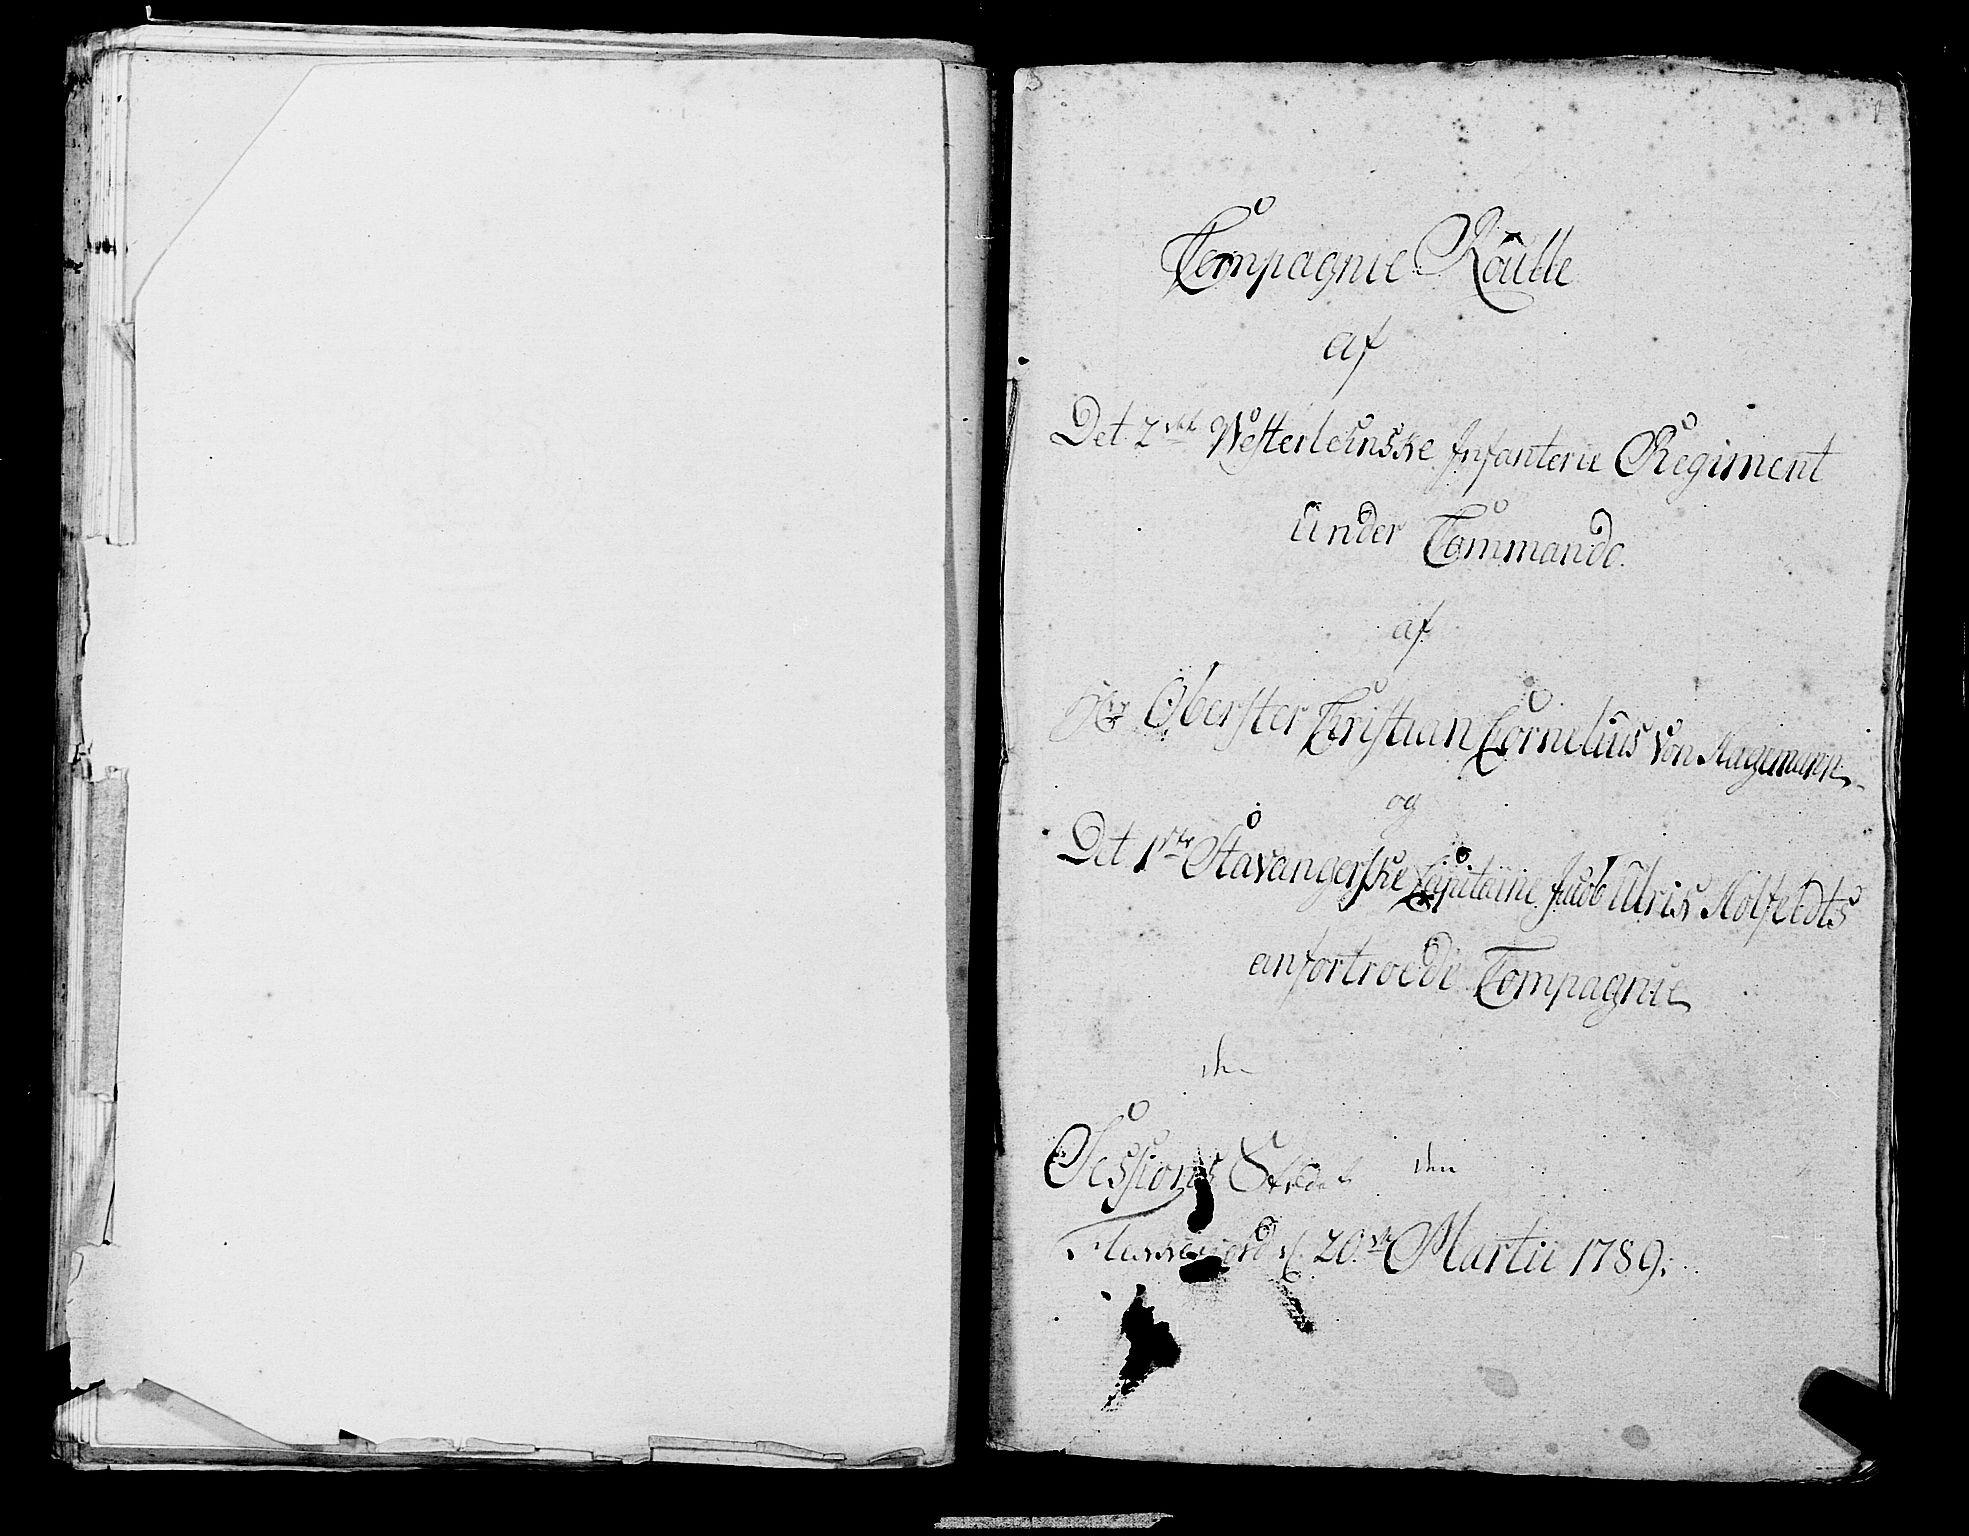 Compagnie Roulle
af
Det 2det Westerleenske Infanterie Regiment
Under Commando
af
Hr Oberster Christian Cornelius von Hagemann
og
Det 1ste Stavangerske Capitaine Jacob Ulrik Holfeldts
anfortroede Compagnie
den
Sessions Stædet den
d. 20de Martii 1789.